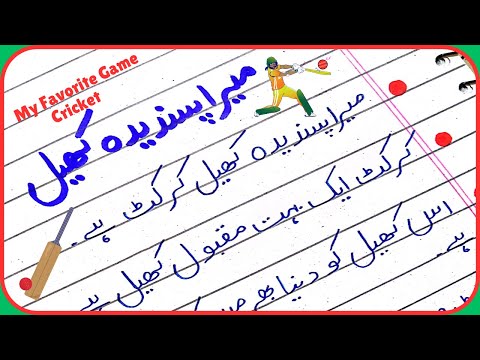 My Favorite Game
Cricket
میرا پسندیدہ کھیل
میرا پسندیدہ کھیل کرکٹ ہے۔
کرکٹ ایک بہت مقبول کھیل ہے
اس کھیل کو دنیا بھر میں
ہے۔